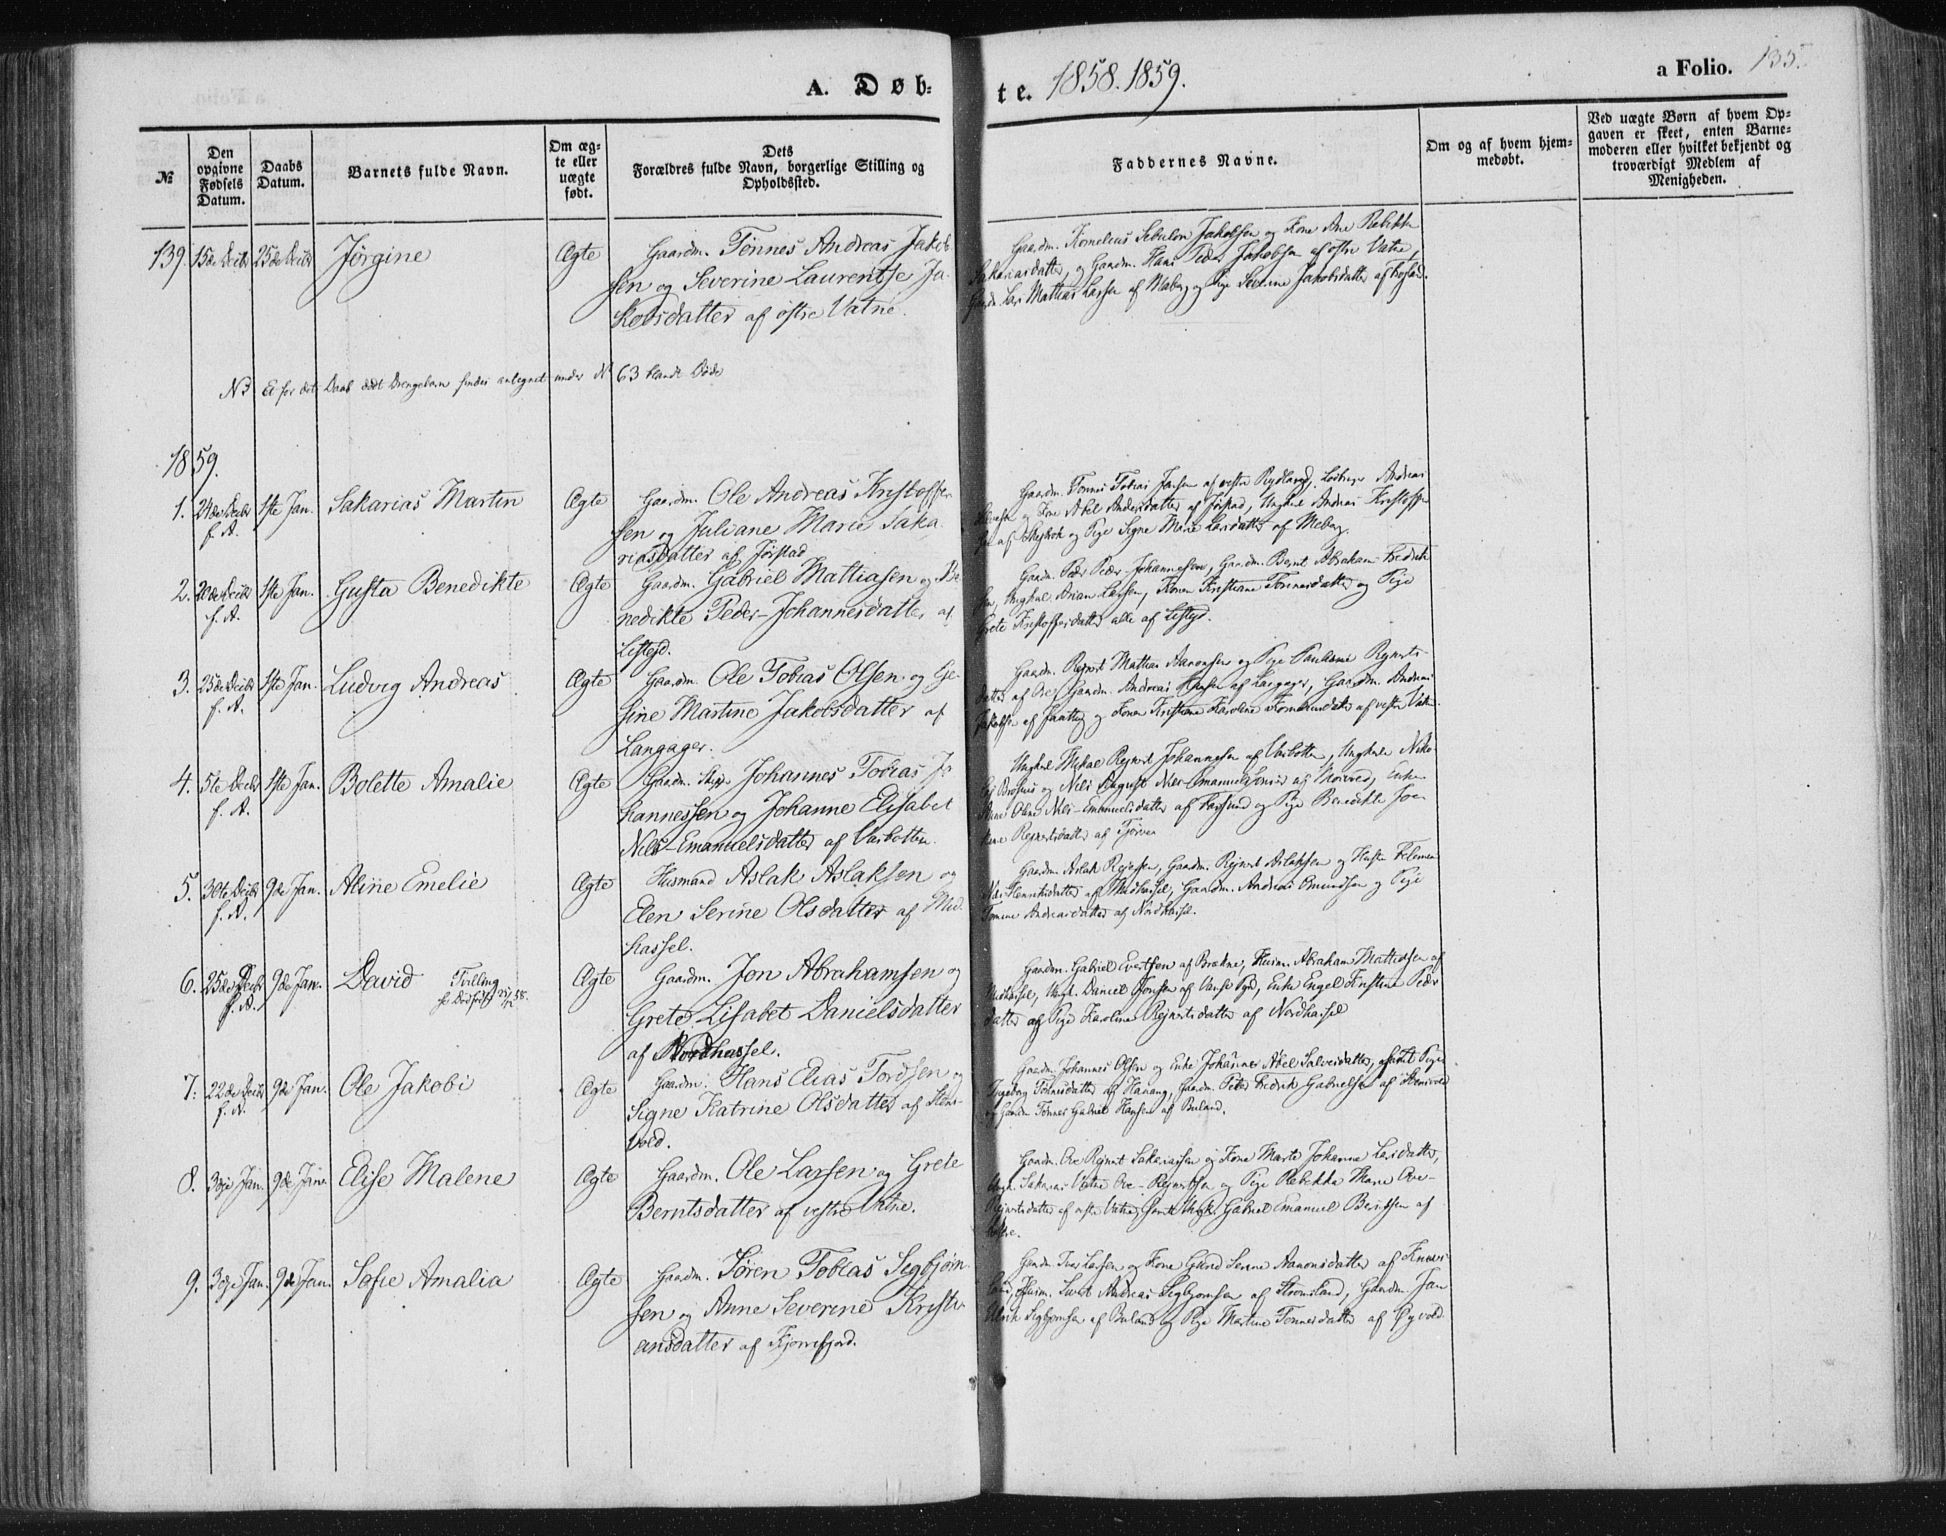 A. Døb=
te. 1858. 1859.
a Folio. 135.
№
Den opgivne Fødsels Datum.
Daabs Datum.
Barnets fulde Navn.
Om ægte eller uægte født.
Dets Forældres fulde Navn, borgerlige Stilling og Opholdssted.
Faddernes Navne.
Om og af hvem hjemmedøbt.
Ved uægte Børn af hvem Opgaven er skeet, enten Barnemoderen eller hvilket bekjendt og troværdigt Medlem af Menigheden.
139. 15de Decbr 25de Decbr Jørgine Ægte Gaardm. Tønnes Andreas Jakob
sen og Severine Laurentse Ja
kobsdatter af østre Vatne.
Gaardm. Kornelius Sebulon Jakobsen og Kone Ane Rebekka
Sakariasdatter, og Gaardm. Hans Peder Jakobsen af østre Vatne,
Gaardm. Lars Mathias Larsen af Meberg og Pige Severine Jakobsdatter af
NB Et før det Daab dødt Drengebarn findes antegnet under N 63 blandt Døde
1859.
1. 24de Decbr f. A. 1ste Jan. Sakarias Martin Ægte Gaardm. Ole Andreas Kristoffer
sen og Juliane Marie Saka
riasdatter af Jørstad
Gaardm. Tønnes Tobias Jansen af vestre
og Kone Abel Andersdatter af Jørstad, Ungkarl Andreas Kristoffer
og Pige Signe Marie Larsdatter af Meberg.
2. f. A. 1ste Jan. Gusta Benedikte Ægte Gaardm. Gabriel Mattiasen og Be
nedikte Peder-Johannesdatter af
Listejd.
Gaardm. Peder Peder-Johannesen, Gaardm. Bernt Abraham Fredrik
sen, Ungkarl Arian Larsen, Konen Kristiane Tønnesdatter og Pige
Grete Kristoffersdatter alle af Listejd.
3. 25de Decbr f. A. 1ste Jan. Ludvig Andreas Ægte Gaardm. Ole Tobias Olsen og Ge
sine Martine Jakobsdatter af
Langager.
Gaardm. Rejnert Mathias Aanonsen og Pige Rejnerts
datter af Ore, Gaardm. Andreas Hansen af Langager, Gaardm. Andreas
Jakobsen af og Konen Kristiane Karoline af vestre Vatne.
4. 5te Decbr f. A. 1ste Jan. Bolette Amalie Ægte Gaardm. Johannes Tobias Jo
hannessen og Johanne Elisabet
Nels-Emanuelsdatter af Varbotten.
Ungkarl Mikal Rejnert Johannesen af Varbotten, Ungkarle
og Nels August Nels-Emanuels
Nels-Emanuelsdatter af Farsund og Pige Benedikte
Rejnertsdatter af Tjørve
5. 30te Decbr f. A. 9de Jan. Aline Emelie Ægte Husmand Aslak Aslaksen og
Elen Serine Olsdatter af Mid
hassel.
Gaardm. Aslak Rejersen, Gaardm. Rejnert Aslaksen og
Henriksdatter af Midhassel, Gaardm. Andreas Omundsen og Pige
Tomine Andreasdatter af Nordhassel.
6. 25de Decbr f. A. 9de Jan. David Tvilling Ægte Gaardm. Jon Abrahamsen og
Grete Lisabet Danielsdatter
af Nordhassel.
Gaardm. Gabriel Evertsen af Brekne, Husm. Abraham Mattiasen af
Midhassel, Ungk. Daniel Jonsen af Vanse Pgd, Enke Engel Kirstine Peder
datter og Pige Karoline Rejnertsdatter af Nordhassel
7. 22de Decbr f. A. 9de Jan. Ole Jakobi Ægte Gaardm. Hans Elias Tordsen og
Signe Katrine Olsdatter af Stens
vold.
Gaardm. Johannes Olsen og Enke Johannes Abel Salvesdatter, samt Pige
Ingeborg Tønnesdatter af Hanang, Gaardm. Peter Fredrik Gabrielsen af Stensvold
og Gaardm. Tønnes Gabriel Hansen af Buland.
8. 3dje Jan. 9de Jan. Elise Malene Ægte Gaardm. Ole Larsen og Grete
Berntsdatter af vestre Vatne.
Gaardm. Ove Rejnert Sakariassen og Kone Marte Johanne Larsdatter,
Ungk. Sakarias Vatne Ove-Rejnertsen og Pige Rebekka Marie Ove-
Rejnertsdatter af østre Vatne samt Ungk. Gabriel Emanuel Berntsen af
9. 3dje Jan. 9de Jan. Sofie Amalia Ægte Gaardm. Søren Tobias Segbjørn
sen og Anne Severine Kristi
ansdatter af Kjørrefjord.
Gaardm. Ivar Larsen og Kone Gund Serine Aanonsdatter af
Husm. Andreas Segbjørnsen af Strømsland, Gaardm. Jan
Ulrik Segbjørnsen af Buland og Pige Martine Tønnesdatter af Øyvold.